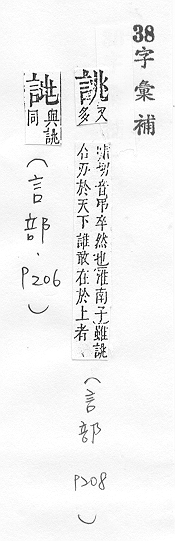 38字彙補
誂又多嘯切音吊卒然也淮南子雖誂
合刃於天下誰敢在於上者
(言部 P208)
與誂同
(言部、P206)